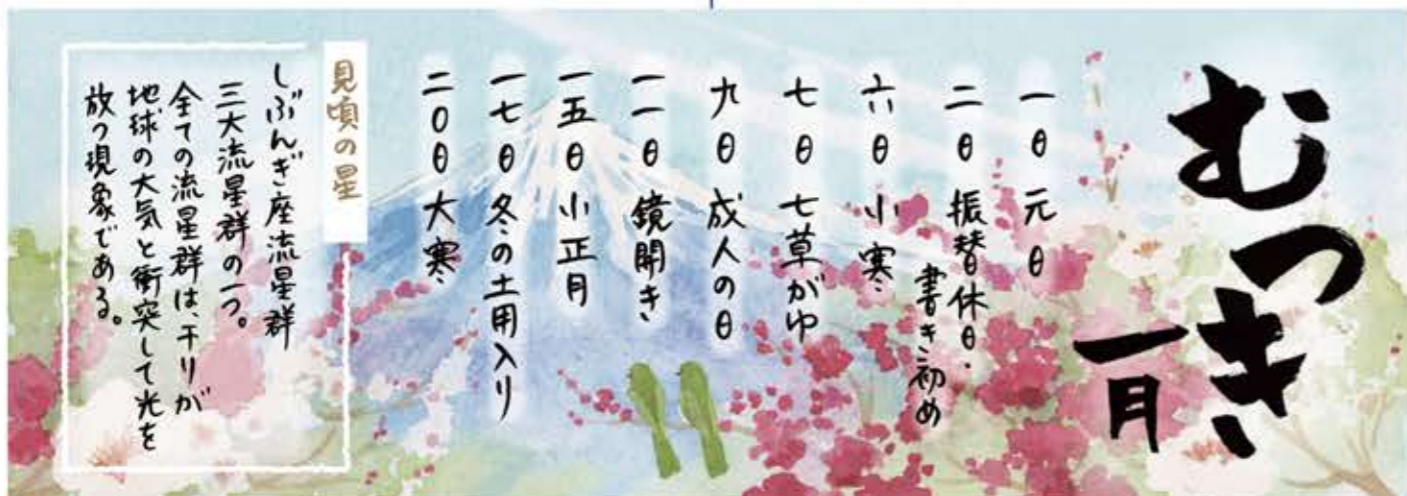 むつき
一月
一日 元日
二日 振替日休日・
書き初め
六日 小寒
七日 七草がゆ
九日 成人の日
一一日 鏡開き
一五日 小正月
一七日 冬の土用入り
二〇日 大寒
見頃の星
しぶんぎ座流星群
三大流星群の一つ。
全ての流星群は、チリが
地球の大気と衝突して光を
放つ現象である。